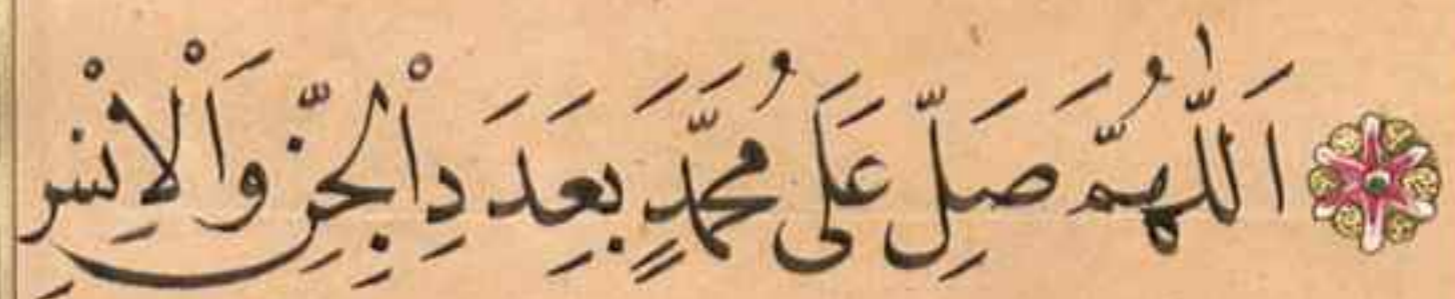 اَللّٰهُمَّ صَلِّ عَلَى مُحَمَّدٍ بِعَدَدِ الْجِنِّ وَالْاِنْسِ